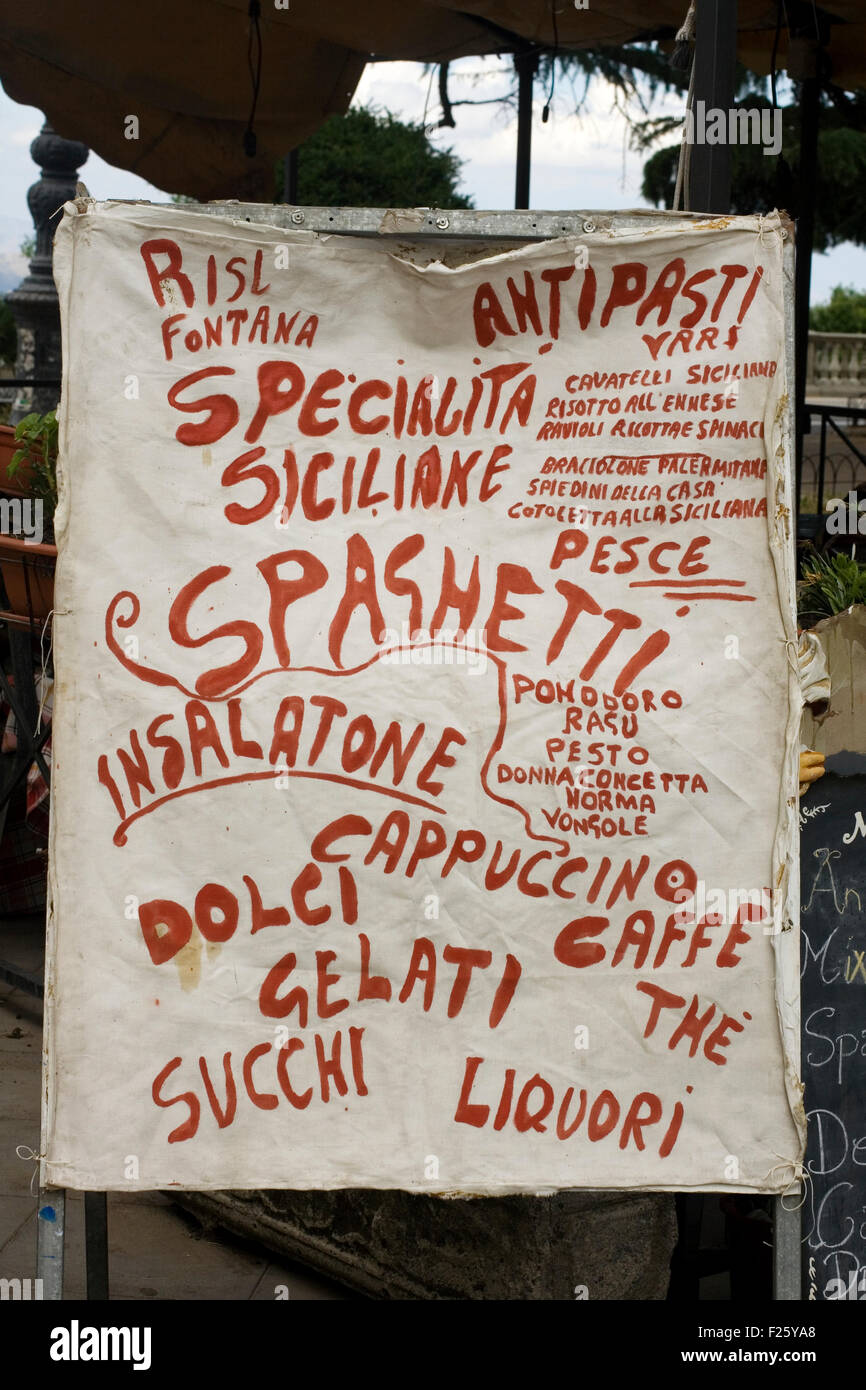 RISL
FONTANA
ANTIPASTI
VARI
SPECIALITÀ
SICILIANE
CAVATELLI SICILIANA
RISOTTO ALL'ENNESE
RAVIOLI RICOTTA E SPINACI
BRACIOLONE PALERMITANA
SPIEDINI DELLA CASA
COTOLETTA ALLA SICILIANA
PESCE
SPAGHETTI
POMODORO
RAGU
PESTO
DONNA CONCETTA
NORMA
VONGOLE
INSALATONE
CAPPUCCINO
DOLCI
CAFFÈ
GELATI
THÈ
SUCCHI
LIQUORI
An
Mix
Spa
De
alamy
Image ID: F25YA8
www.alamy.com